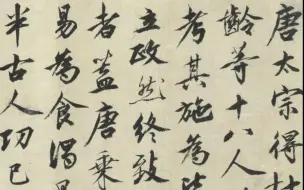 唐太宗得杜
齡等十八人
考其施為
立政然終致
者蓋唐乘
易為食渴易
半古人功已